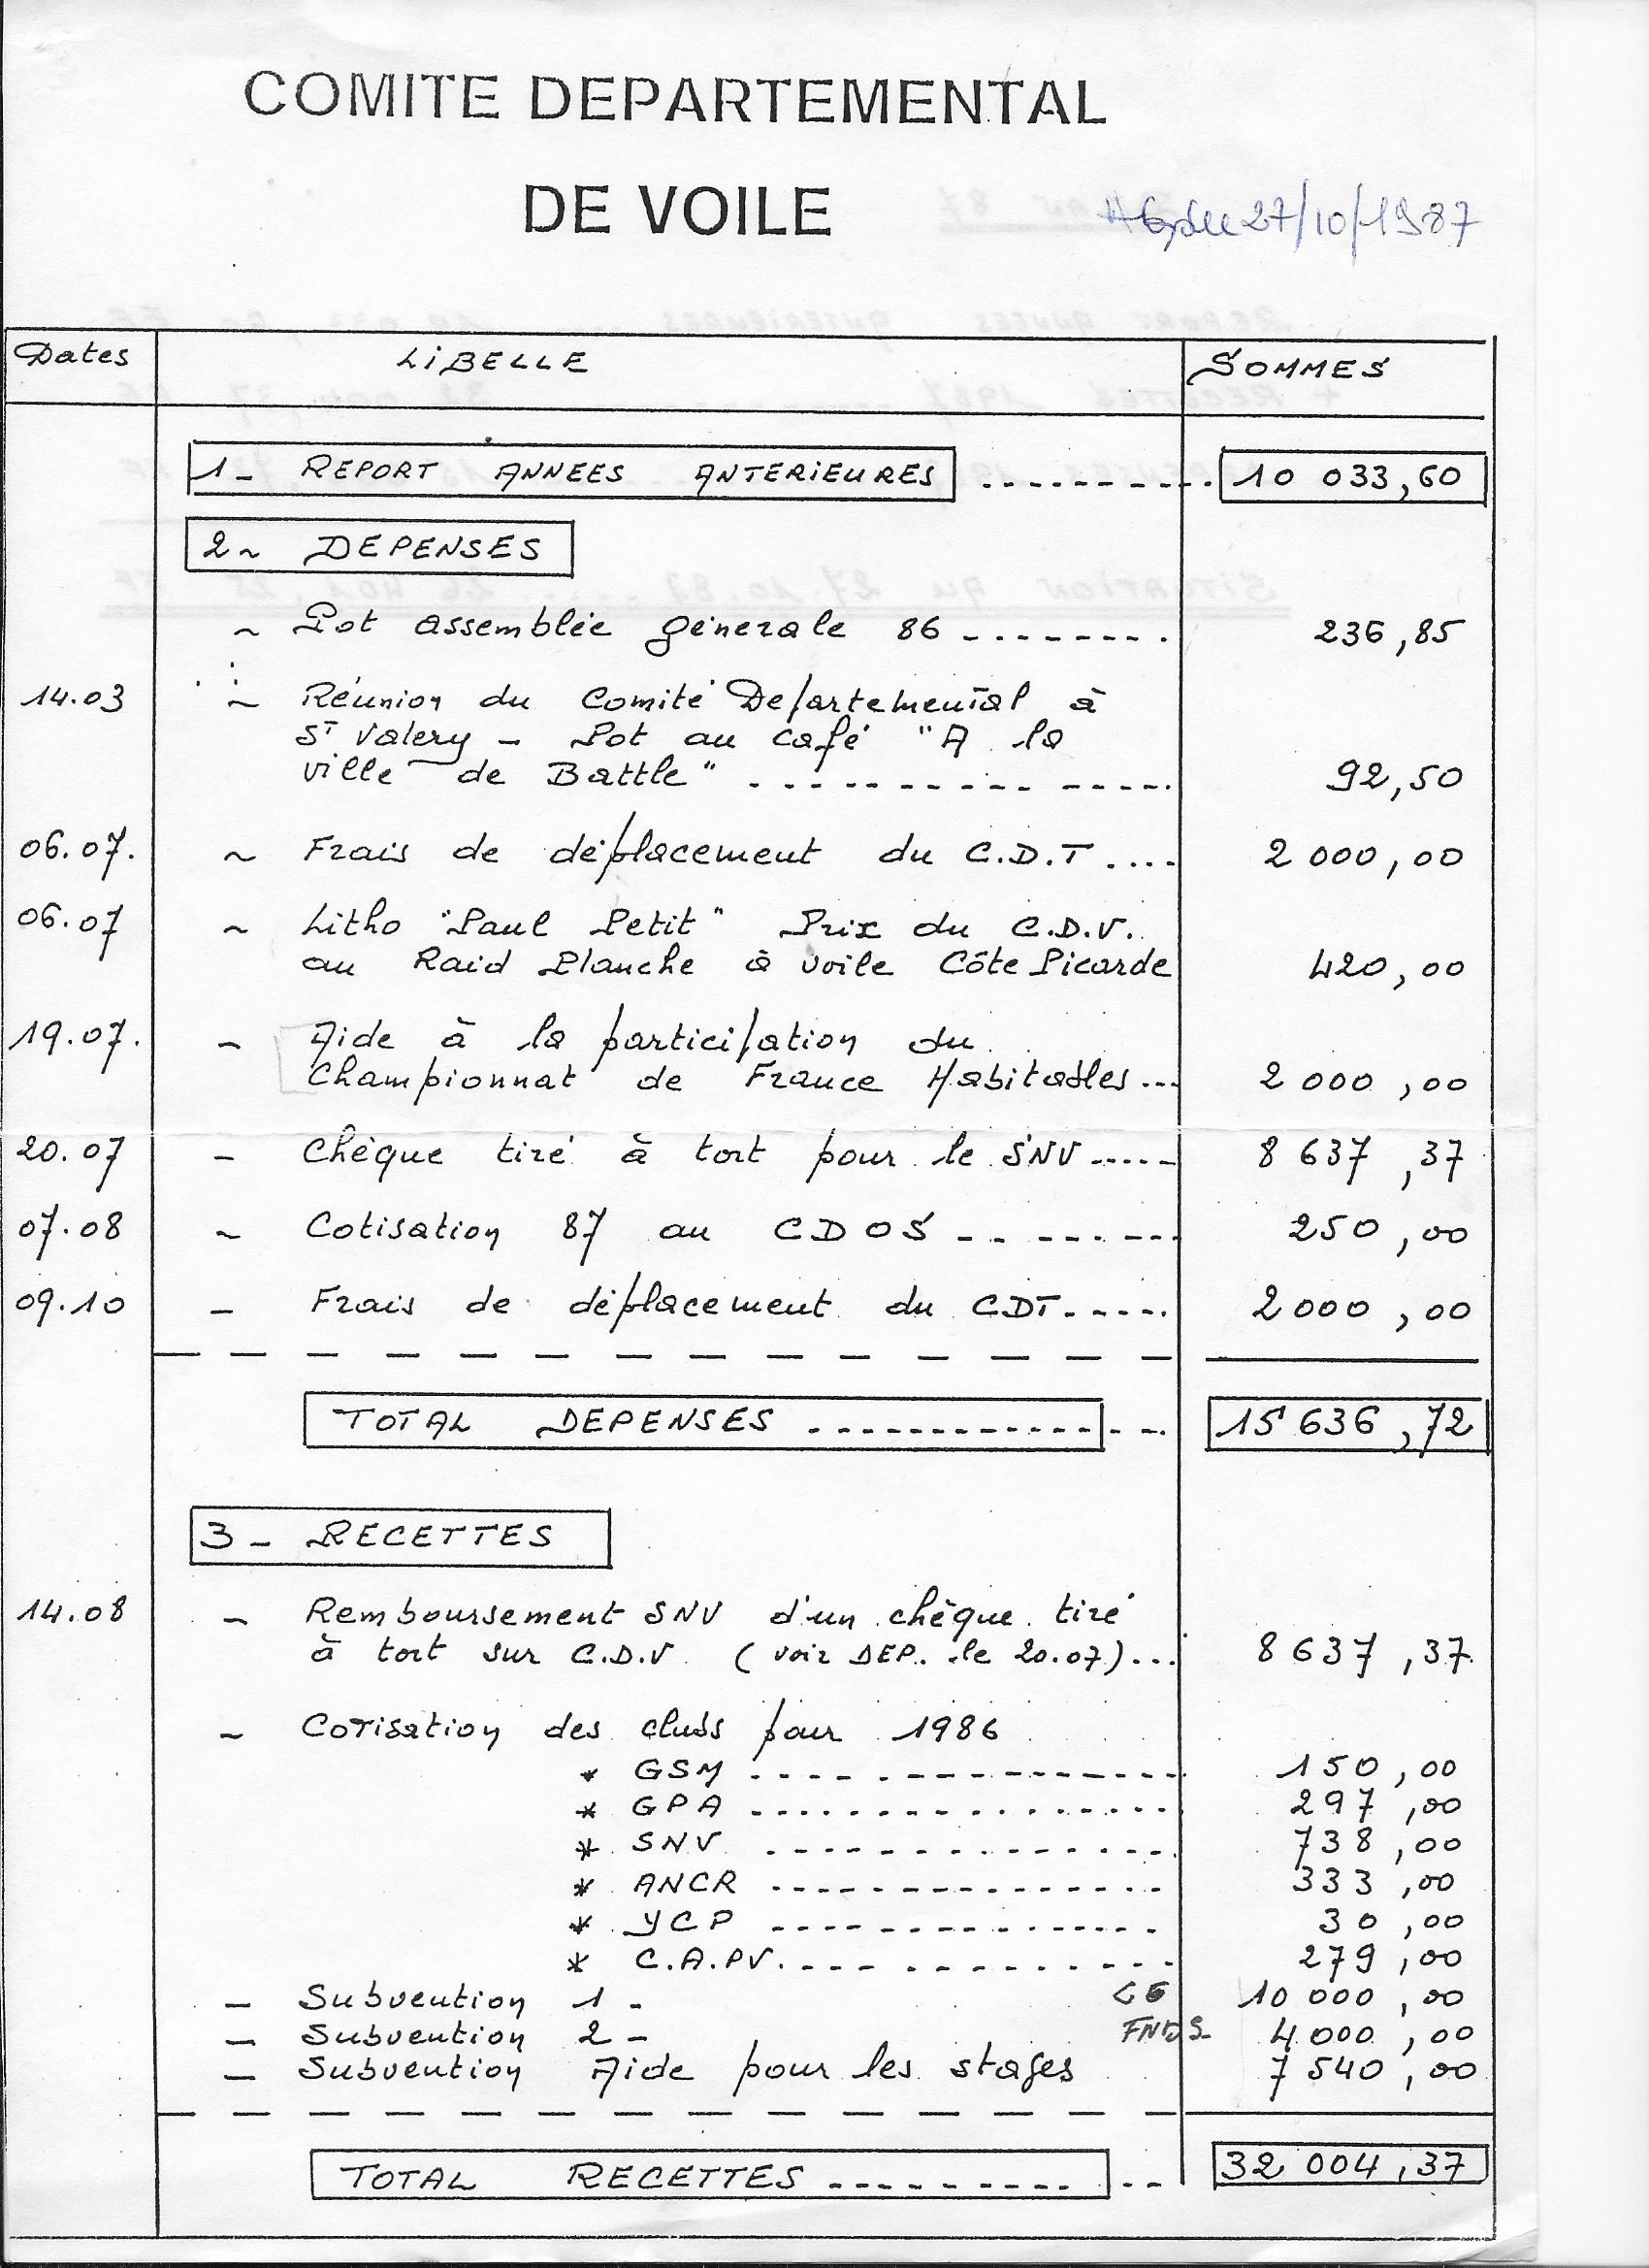 COMITE DEPARTEMENTAL
DE VOILE
27/10/1987
Dates LIBELLE SOMMES
1- REPORT ANNEES ANTERIEURES .......... 10 033,60
2- DEPENSES
- Pot assemblée générale 86 -------- 236,85
14.03 - Réunion du Comité Departemental à
St Valery - Pot au café "A la
ville de Battle" --------------- 92,50
06.07. - Frais de déplacement du C.D.T .... 2 000,00
06.07 - Litho "Paul Petit" Prix du C.D.V.
au Raid Planche à voile Côte Picarde 420,00
19.07. - Aide à la participation du
Championnat de France Habitables... 2 000,00
20.07 - Chèque tiré à tort pour le SNV ----- 8 637,37
07.08 - Cotisation 87 au CDOS --------- 250,00
09.10 - Frais de déplacement du CDT ----- 2 000,00
TOTAL DEPENSES -------------- 15 636,72
3- RECETTES
14.08 - Remboursement SNV d'un chèque tiré
à tort sur C.D.V. (voir DEP. le 20.07)... 8 637,37
- Cotisation des clubs pour 1986
* GSM ---------------- 150,00
* GPA ---------------- 297,00
* SNV --------------- 738,00
* ANCR --------------- 333,00
* YCP --------------- 30,00
* C.A.PV. -------------- 279,00
- Subvention 1 - CG 10 000,00
- Subvention 2 - FNDS 4 000,00
- Subvention Aide pour les stages 7 540,00
TOTAL RECETTES ----------- 32 004,37